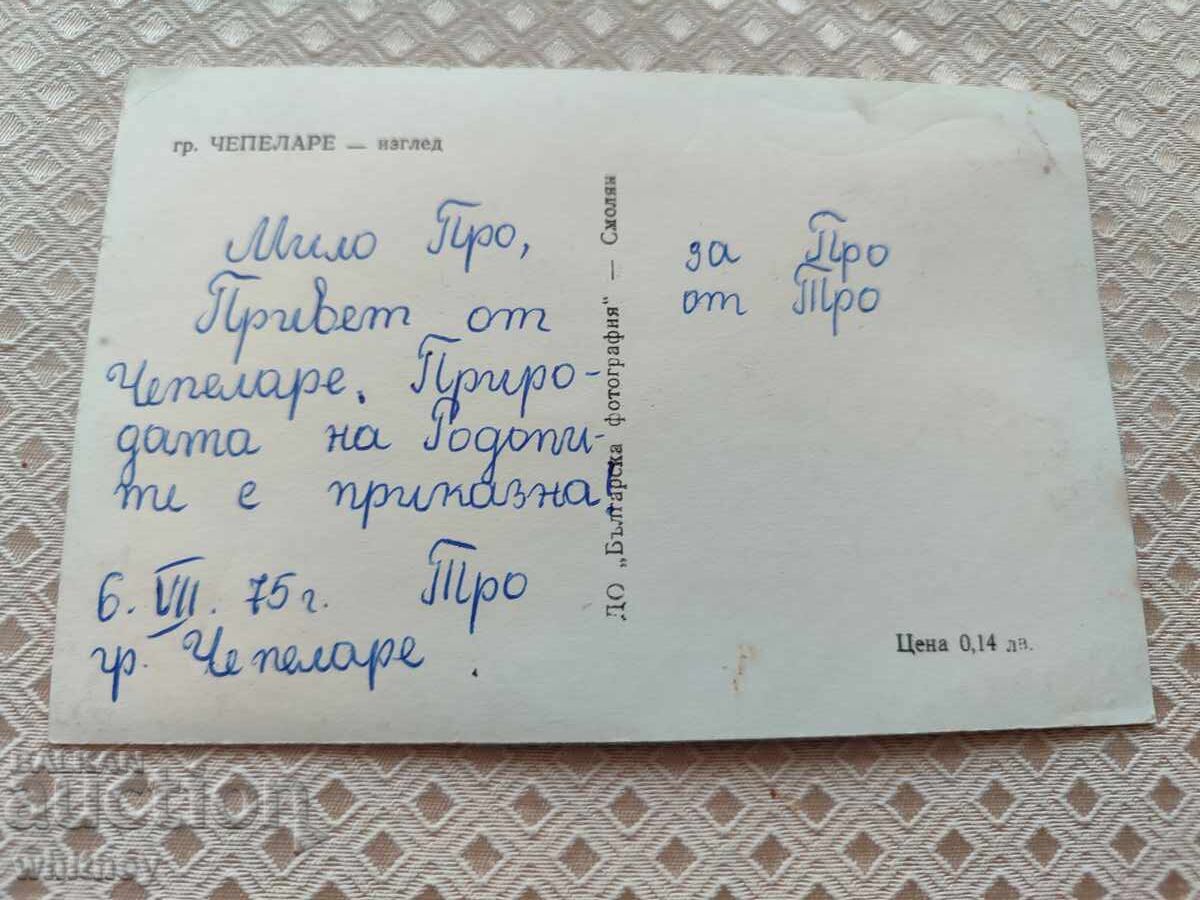 гр. ЧЕПЕЛАРЕ — изглед
Мило Про,
Привет от
Чепеларе. Приро-
дата на Родопи-
те е приказна!
6. VII. 75 г. Тро
гр. Чепеларе.
ДО „Българска фотография" — Смолян
за Про
от Тро
Цена 0,14 лв.
BALKAN
auction
whitney